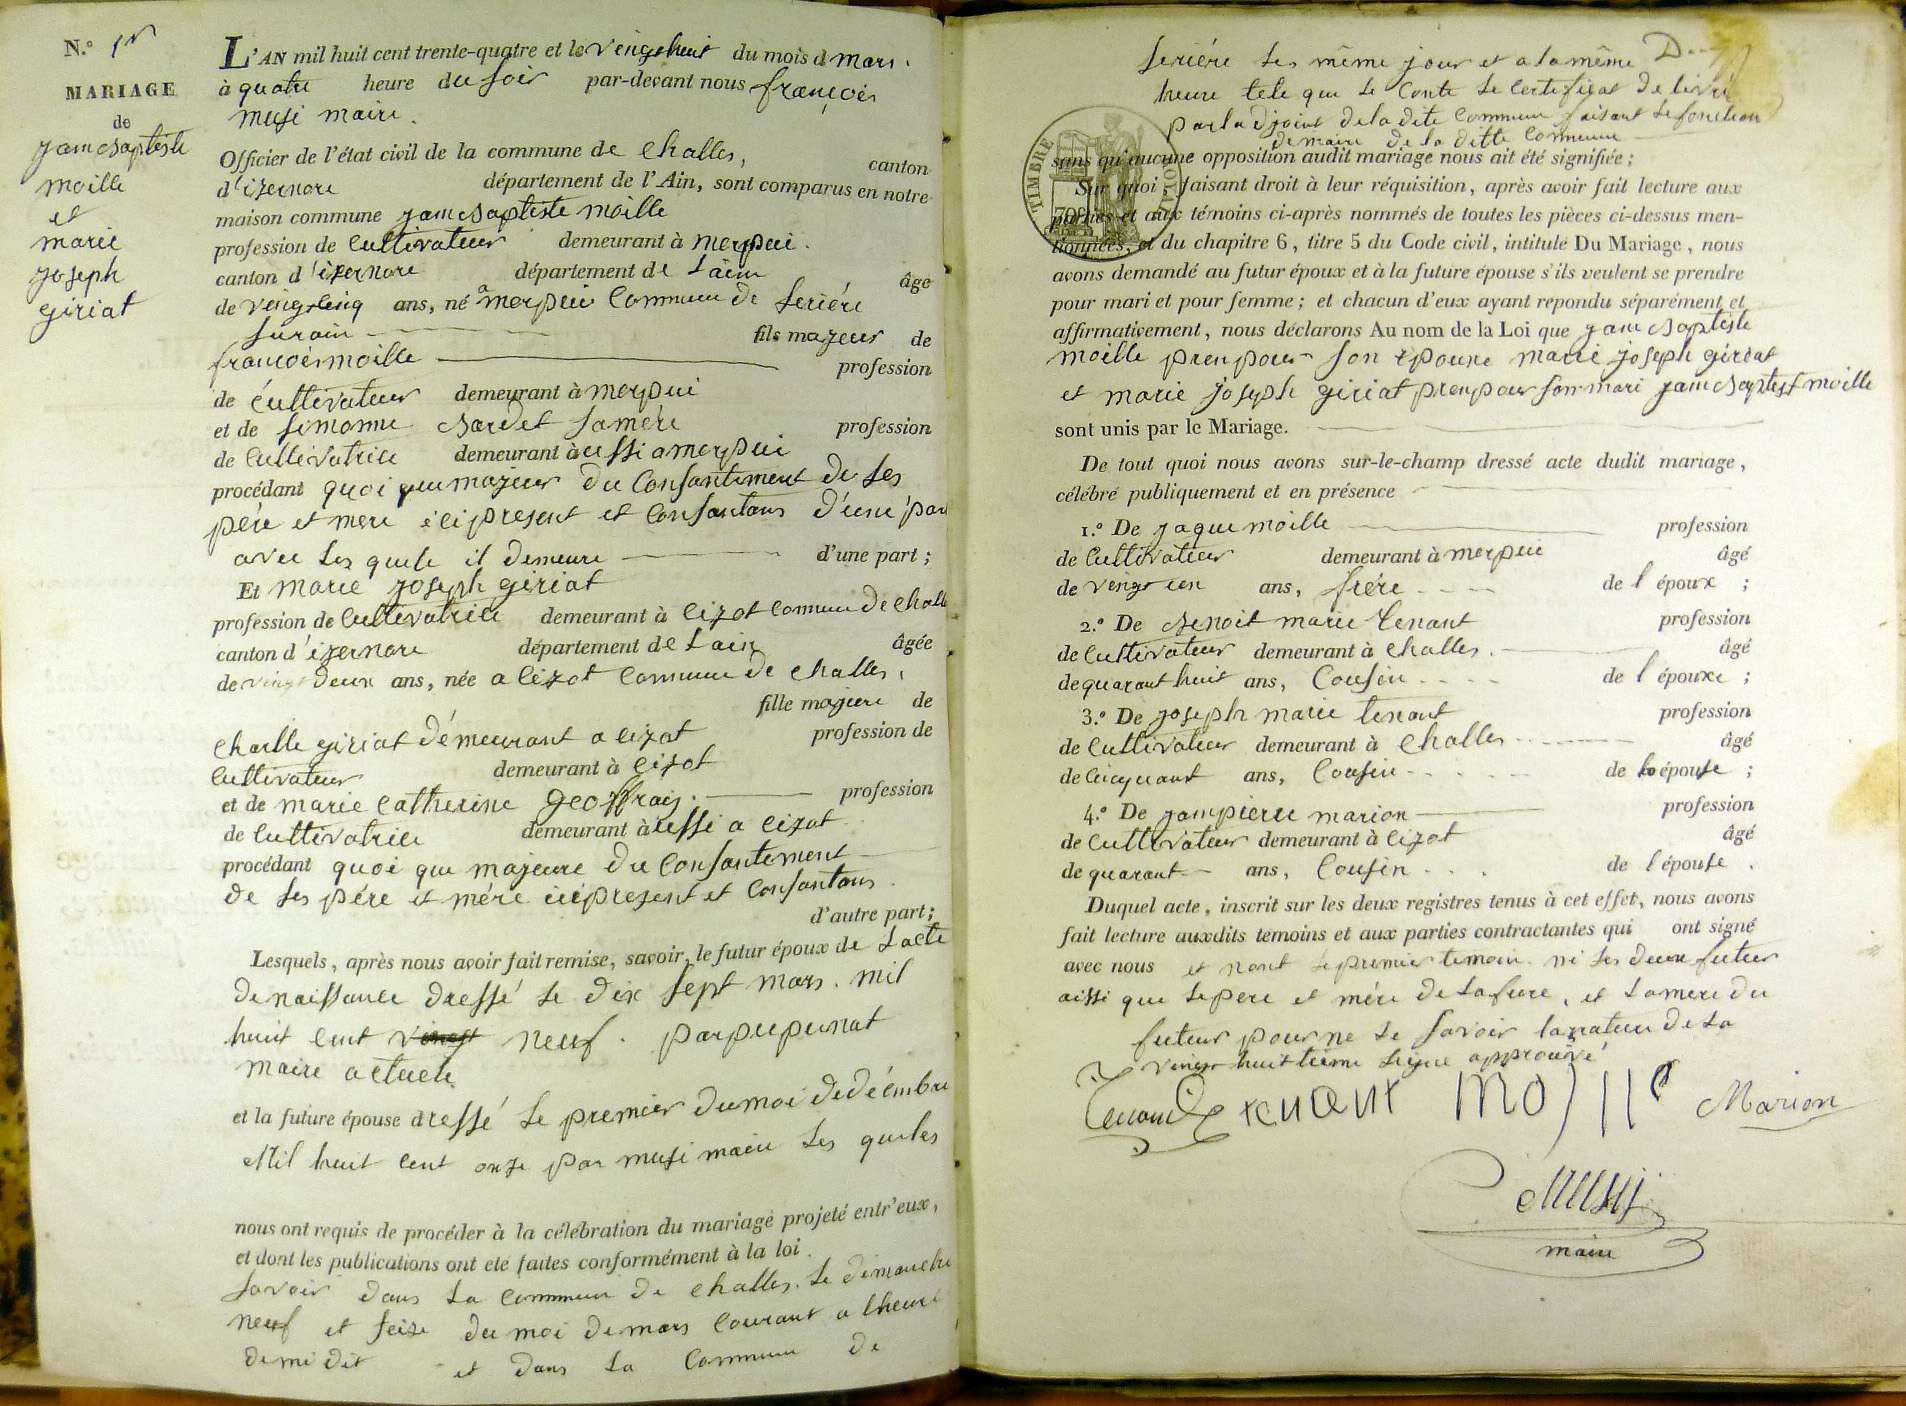 N.º 1er
MARIAGE
de
jamsbaptiste
moille
et
marie
joseph
giriat
L'AN mil huit cent trente-quatre et le vingthuit du mois d mars.
à quatre heure du soir par-devant nous françois
musi maire.
Officier de l'état civil de la commune de challes, canton
d'izernore département de l'Ain, sont comparus en notre
maison commune jamsbaptiste moille
profession de cultivateur demeurant à merpui.
canton d'izernore département de Lain âge
de vingtcinq ans, né a merpui commune de seriére
surain fils majeur de
françois moille profession
de cultivateur demeurant à merpui
et de simonne bardet samére profession
de cultivatrice demeurant àussi a merpui
procédant quoi queu majeur du consantement de ses
pére et mere ici present et consantans d'eune par
avec les quele il demeure d'une part ;
Et marie joseph giriat
profession de cultivatrice demeurant à cizot commune de chall
canton d'izernore département de Lain âgée
de vingt deux ans, née a cizot commune de challes,
fille majeure de
charlle giriat démeurant a cizot profession de
cultivateur demeurant à cizot
et de marie catherine geoffray. profession
de cultivatrice demeurant àussi a cizot
procédant quoi que majeure du consantement
de ses pére et mére icipresent et consantans.
d'autre part ;
Lesquels, après nous avoir fait remise, savoir, le futur époux de Lacte
denaissance dressé le dix sept mars. mil
huit cent vingt neuf. par pupunat
maire actuele
et la future épouse dressé le premier dumoi dedécimbre
Mil huit cent onze par musi maire Les queles
nous ont requis de procéder à la célébration du mariage projeté entr'eux,
et dont les publications ont été faites conformément à la loi.
savoir dans la commune de challes. le dimanche
neuf et seize du moi demars courant a lheure
demidit et dans la commune de
seriére les même jour et a lamême
heure tele que le conte le certificat delivré
parladjoint deladite commune faisant le fonction
demaire de la ditte commune
TIMBRE ROYAL
sans qu'aucune opposition audit mariage nous ait été signifiée ;
Sur quoi, faisant droit à leur réquisition, après avoir fait lecture aux
parties et aux témoins ci-après nommés de toutes les pièces ci-dessus men-
tionnées, et du chapitre 6, titre 5 du Code civil, intitulé Du Mariage, nous
avons demandé au futur époux et à la future épouse s'ils veulent se prendre
pour mari et pour femme ; et chacun d'eux ayant repondu séparément et
affirmativement, nous déclarons Au nom de la Loi que jamsbaptiste
moille prenpour son epouxe marie joseph giriat
et marie joseph giriat prenpour son mari jamsbaptist moille
sont unis par le Mariage.
De tout quoi nous avons sur-le-champ dressé acte dudit mariage,
célébré publiquement et en présence
1.º De jaque moille profession
de cultivateur demeurant à merpui âgé
de vingt un ans, frére de l époux ;
2.º De benoit marie tenant profession
de cultivateur demeurant à challes. âgé
de quarant huit ans, cousin de l épouxe ;
3.º De joseph marie tenant profession
de cultivateur demeurant à challes âgé
de cinquant ans, cousin de lo épouse ;
4.º De jampierre marion profession
de cultivateur demeurant à cizot âgé
de quarant ans, cousin de l épouse.
Duquel acte, inscrit sur les deux registres tenus à cet effet, nous avons
fait lecture auxdits temoins et aux parties contractantes qui ont signé
avec nous et nont le premier temoin. ni les deux futur
aissi que le pere et mére de lafuture, et Lamere du
futeur pour ne le savoir
vingt huittieme ligne approuvé
Tenant tenant moille Marion
Musy
maire